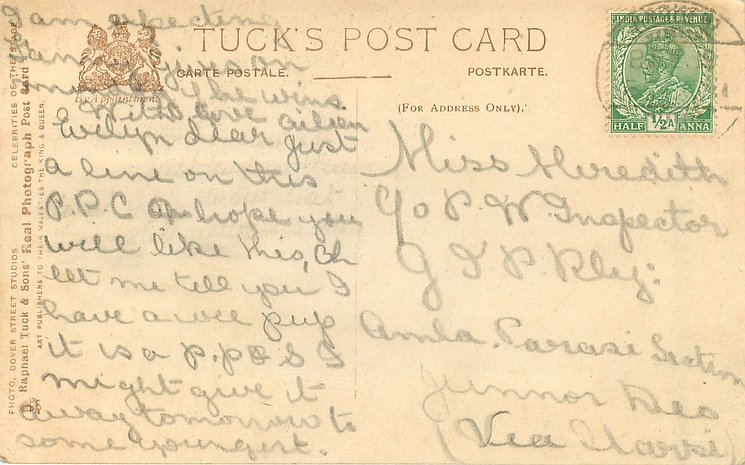 I am
TUCK'S POST CARD
CARTE POSTALE.
POSTKARTE.
By Appointment
(FOR ADDRESS ONLY).
INDIA POSTAGE & REVENUE
HALF ½A ANNA
he wins
With love
Evelyn dear just
a line on this
P.P.C hope you
will like this, Oh
let me tell you I
have a wee pup
it is a I
might give it
away tomorrow to
some
Miss Meredith
c/o P. W. Inspector
G I P. Rly:
Amla. Parasi Section
Junnor Deo
(Via
PHOTO, DOVER STREET STUDIOS. CELEBRITIES OF THE STAGE
Raphael Tuck & Sons' Real Photograph Post Card
ART PUBLISHERS TO THEIR MAJESTIES THE KING & QUEEN.